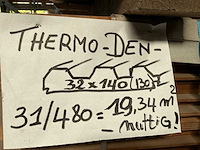 THERMO-DEN-
32 x 140 (130)
31/480 = 19,34 m²
- multig!